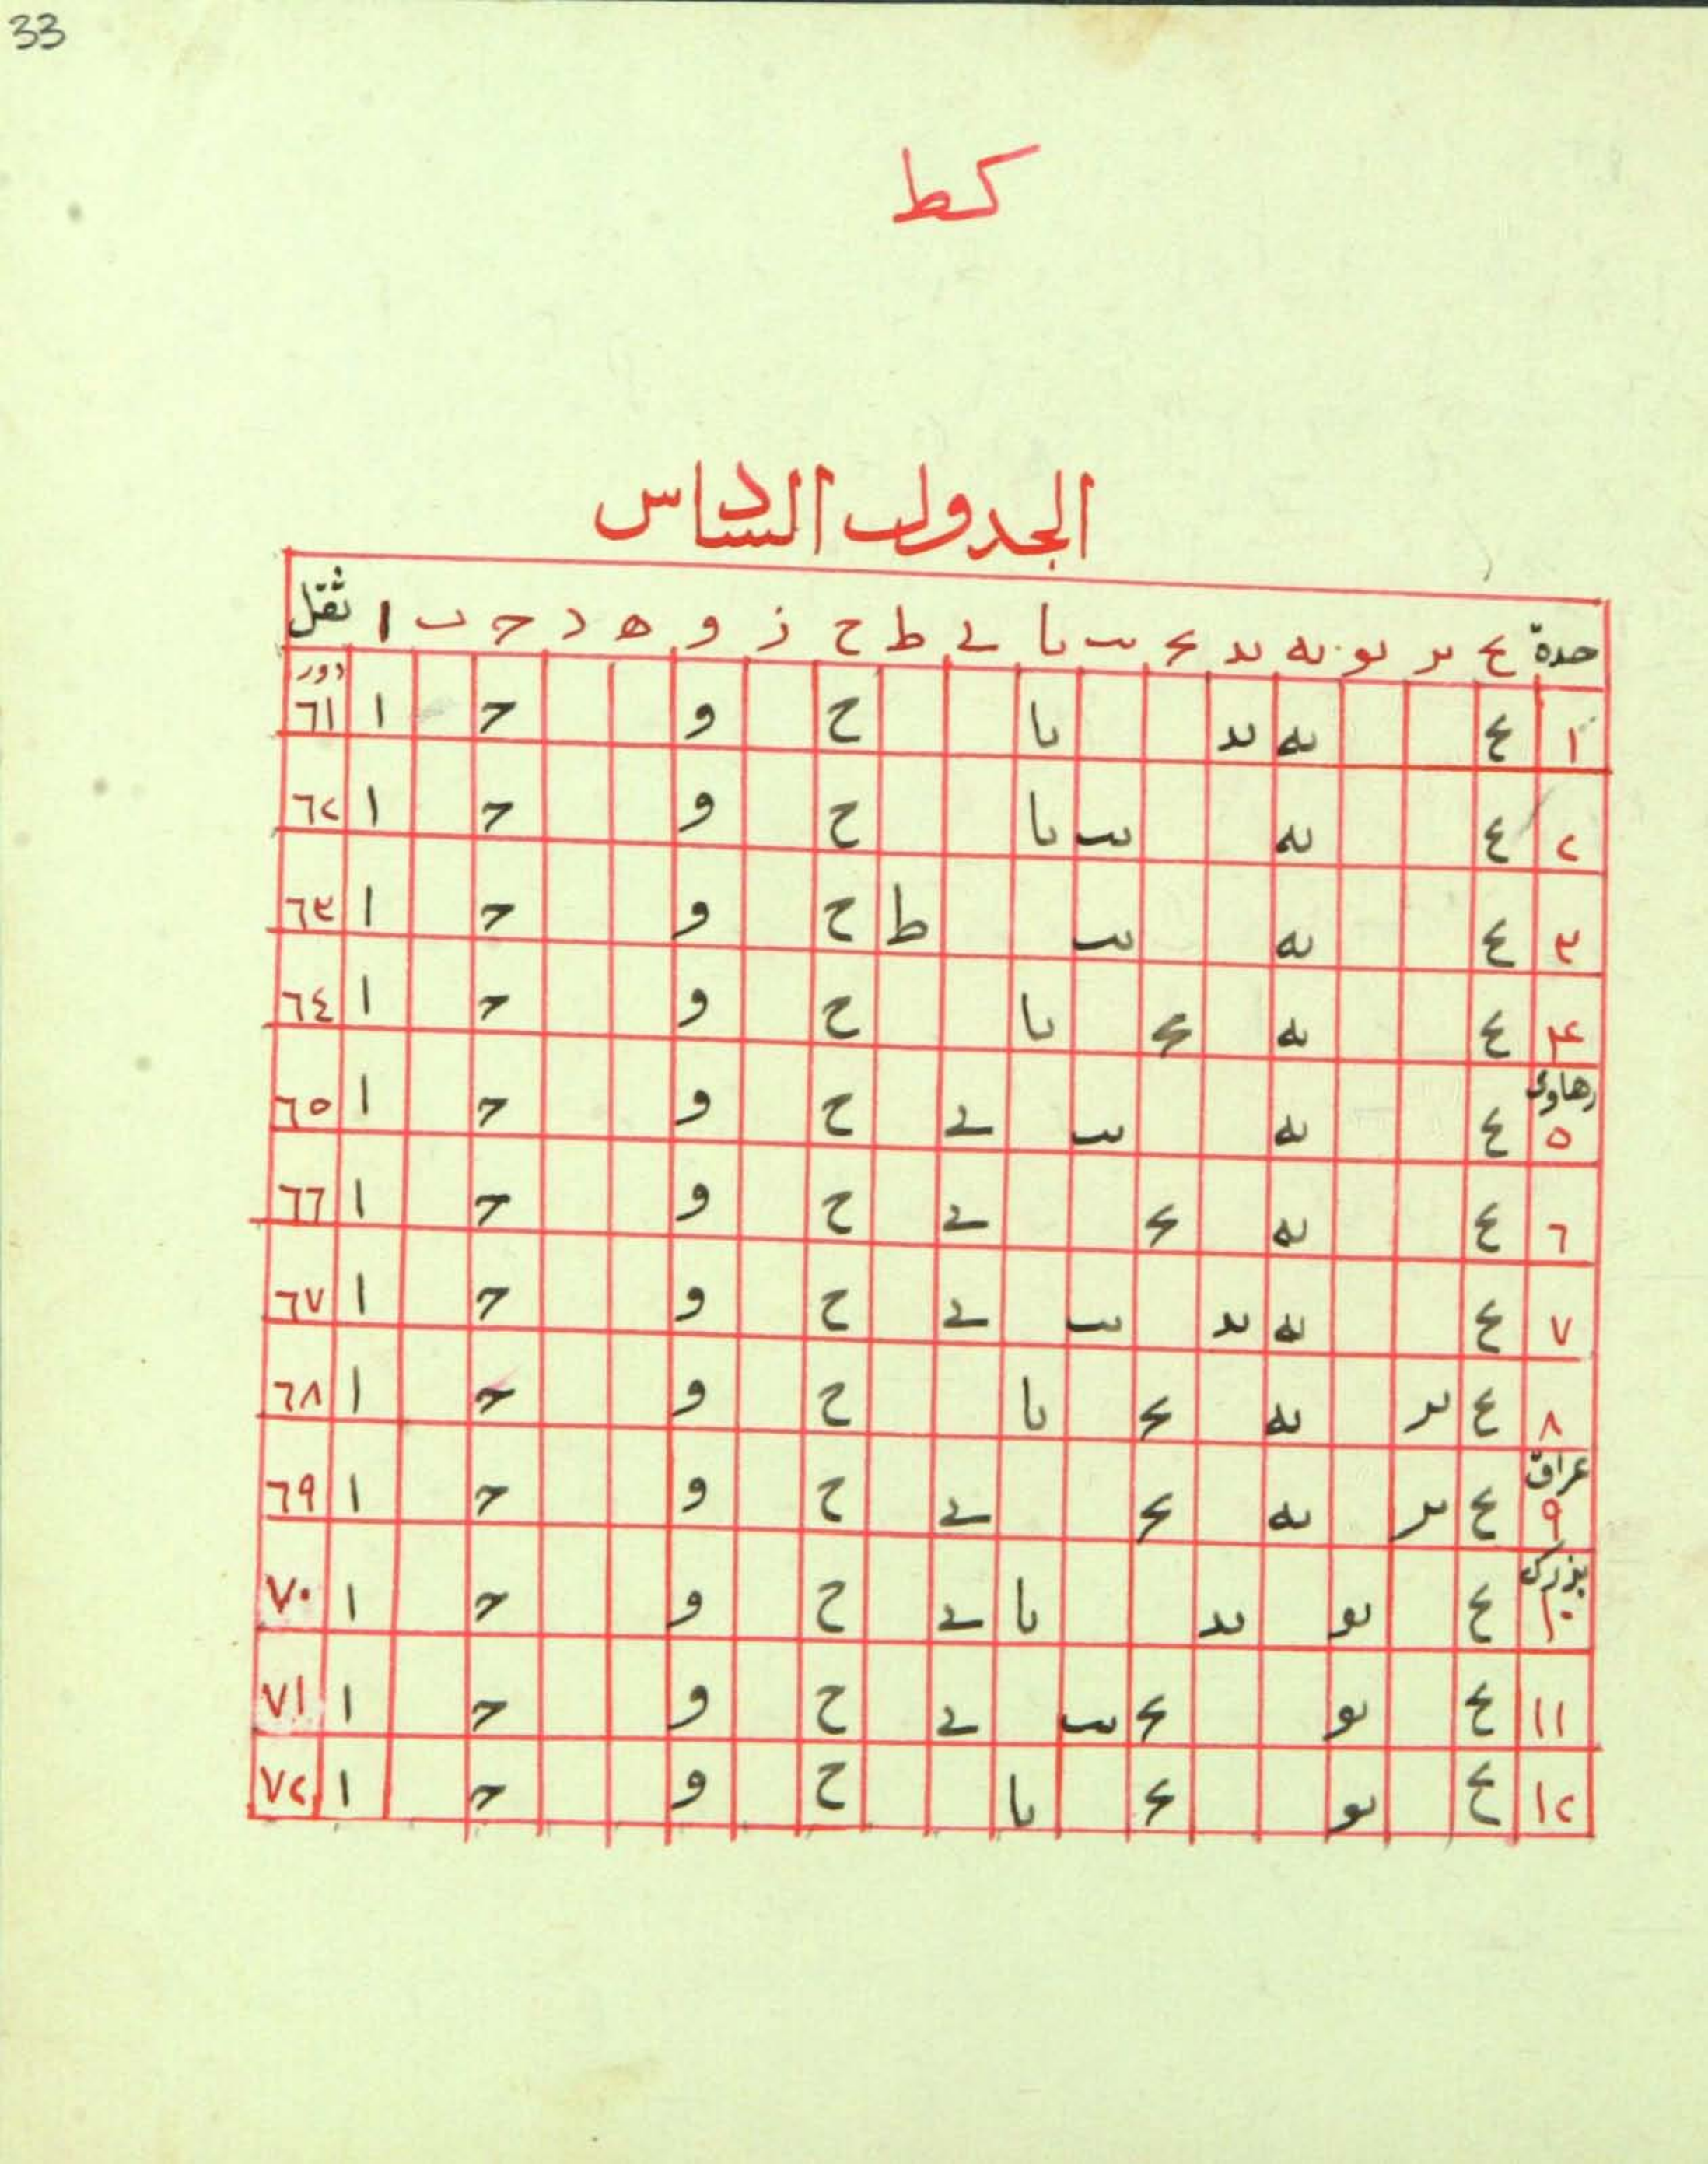 33
كط
الجدول السادس
حدة يح يز يو يه يد يج يب يا ي ط ح ز و ه د ج ب ا ثقل
دور
١ يح يه يد يا ح و ج ا ٦١
٢ يح يه يب يا ح و ج ا ٦٢
٣ يح يه يب ط ح و ج ا ٦٣
۴ يح يه يج يا ح و ج ا ٦٤
رهاوى
٥ يح يه يب ي ح و ج ا ٦٥
٦ يح يه يج ي ح و ج ا ٦٦
٧ يح يه يد يب ي ح و ج ا ٦٧
٨ يح يز يه يج يا ح و ج ا ٦٨
عراق
٩ يح يز يه يج ي ح و ج ا ٦٩
بزرك
١٠ يح يو يد يا ي ح و ج ا ٧٠
١١ يح يو يج يب ي ح و ج ا ٧١
١٢ يح يو يج يا ح و ج ا ٧٢